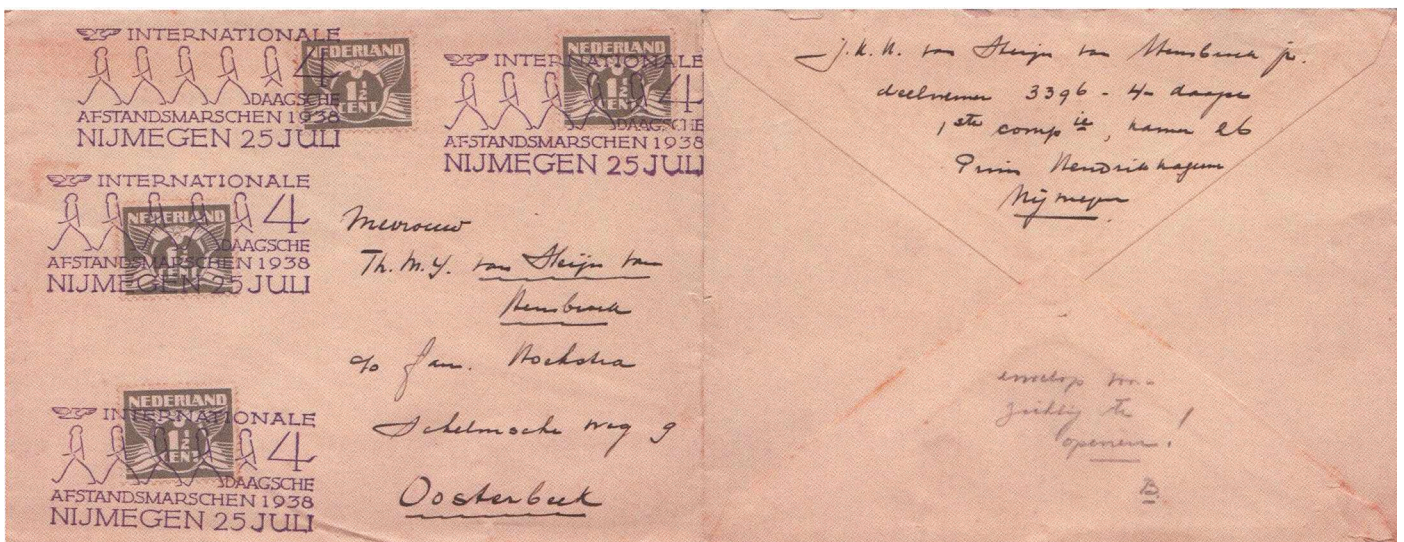 INTERNATIONALE
4
DAAGSCHE
AFSTANDSMARSCHEN 1938
NIJMEGEN 25 JULI
NEDERLAND
1½
CENT
INTERNATIONALE
4
DAAGSCHE
AFSTANDSMARSCHEN 1938
NIJMEGEN 25 JULI
NEDERLAND
1½
CENT
INTERNATIONALE
4
DAAGSCHE
AFSTANDSMARSCHEN 1938
NIJMEGEN 25 JULI
NEDERLAND
1½
CENT
INTERNATIONALE
4
DAAGSCHE
AFSTANDSMARSCHEN 1938
NIJMEGEN 25 JULI
NEDERLAND
1½
CENT
Mevrouw
Th. M. Y. van Steijn van
Hensbroek
c/o fam. Hoekstra
Schelmsche weg 9
Oosterbeek
J. K. H. van Steijn van Hensbroek jr.
deelnemer 3396 - 4-daagse
1ste compie, kamer 26
Prins Hendrikkazerne
Nijmegen
envelop voor-
zichtig te
openen!
B.